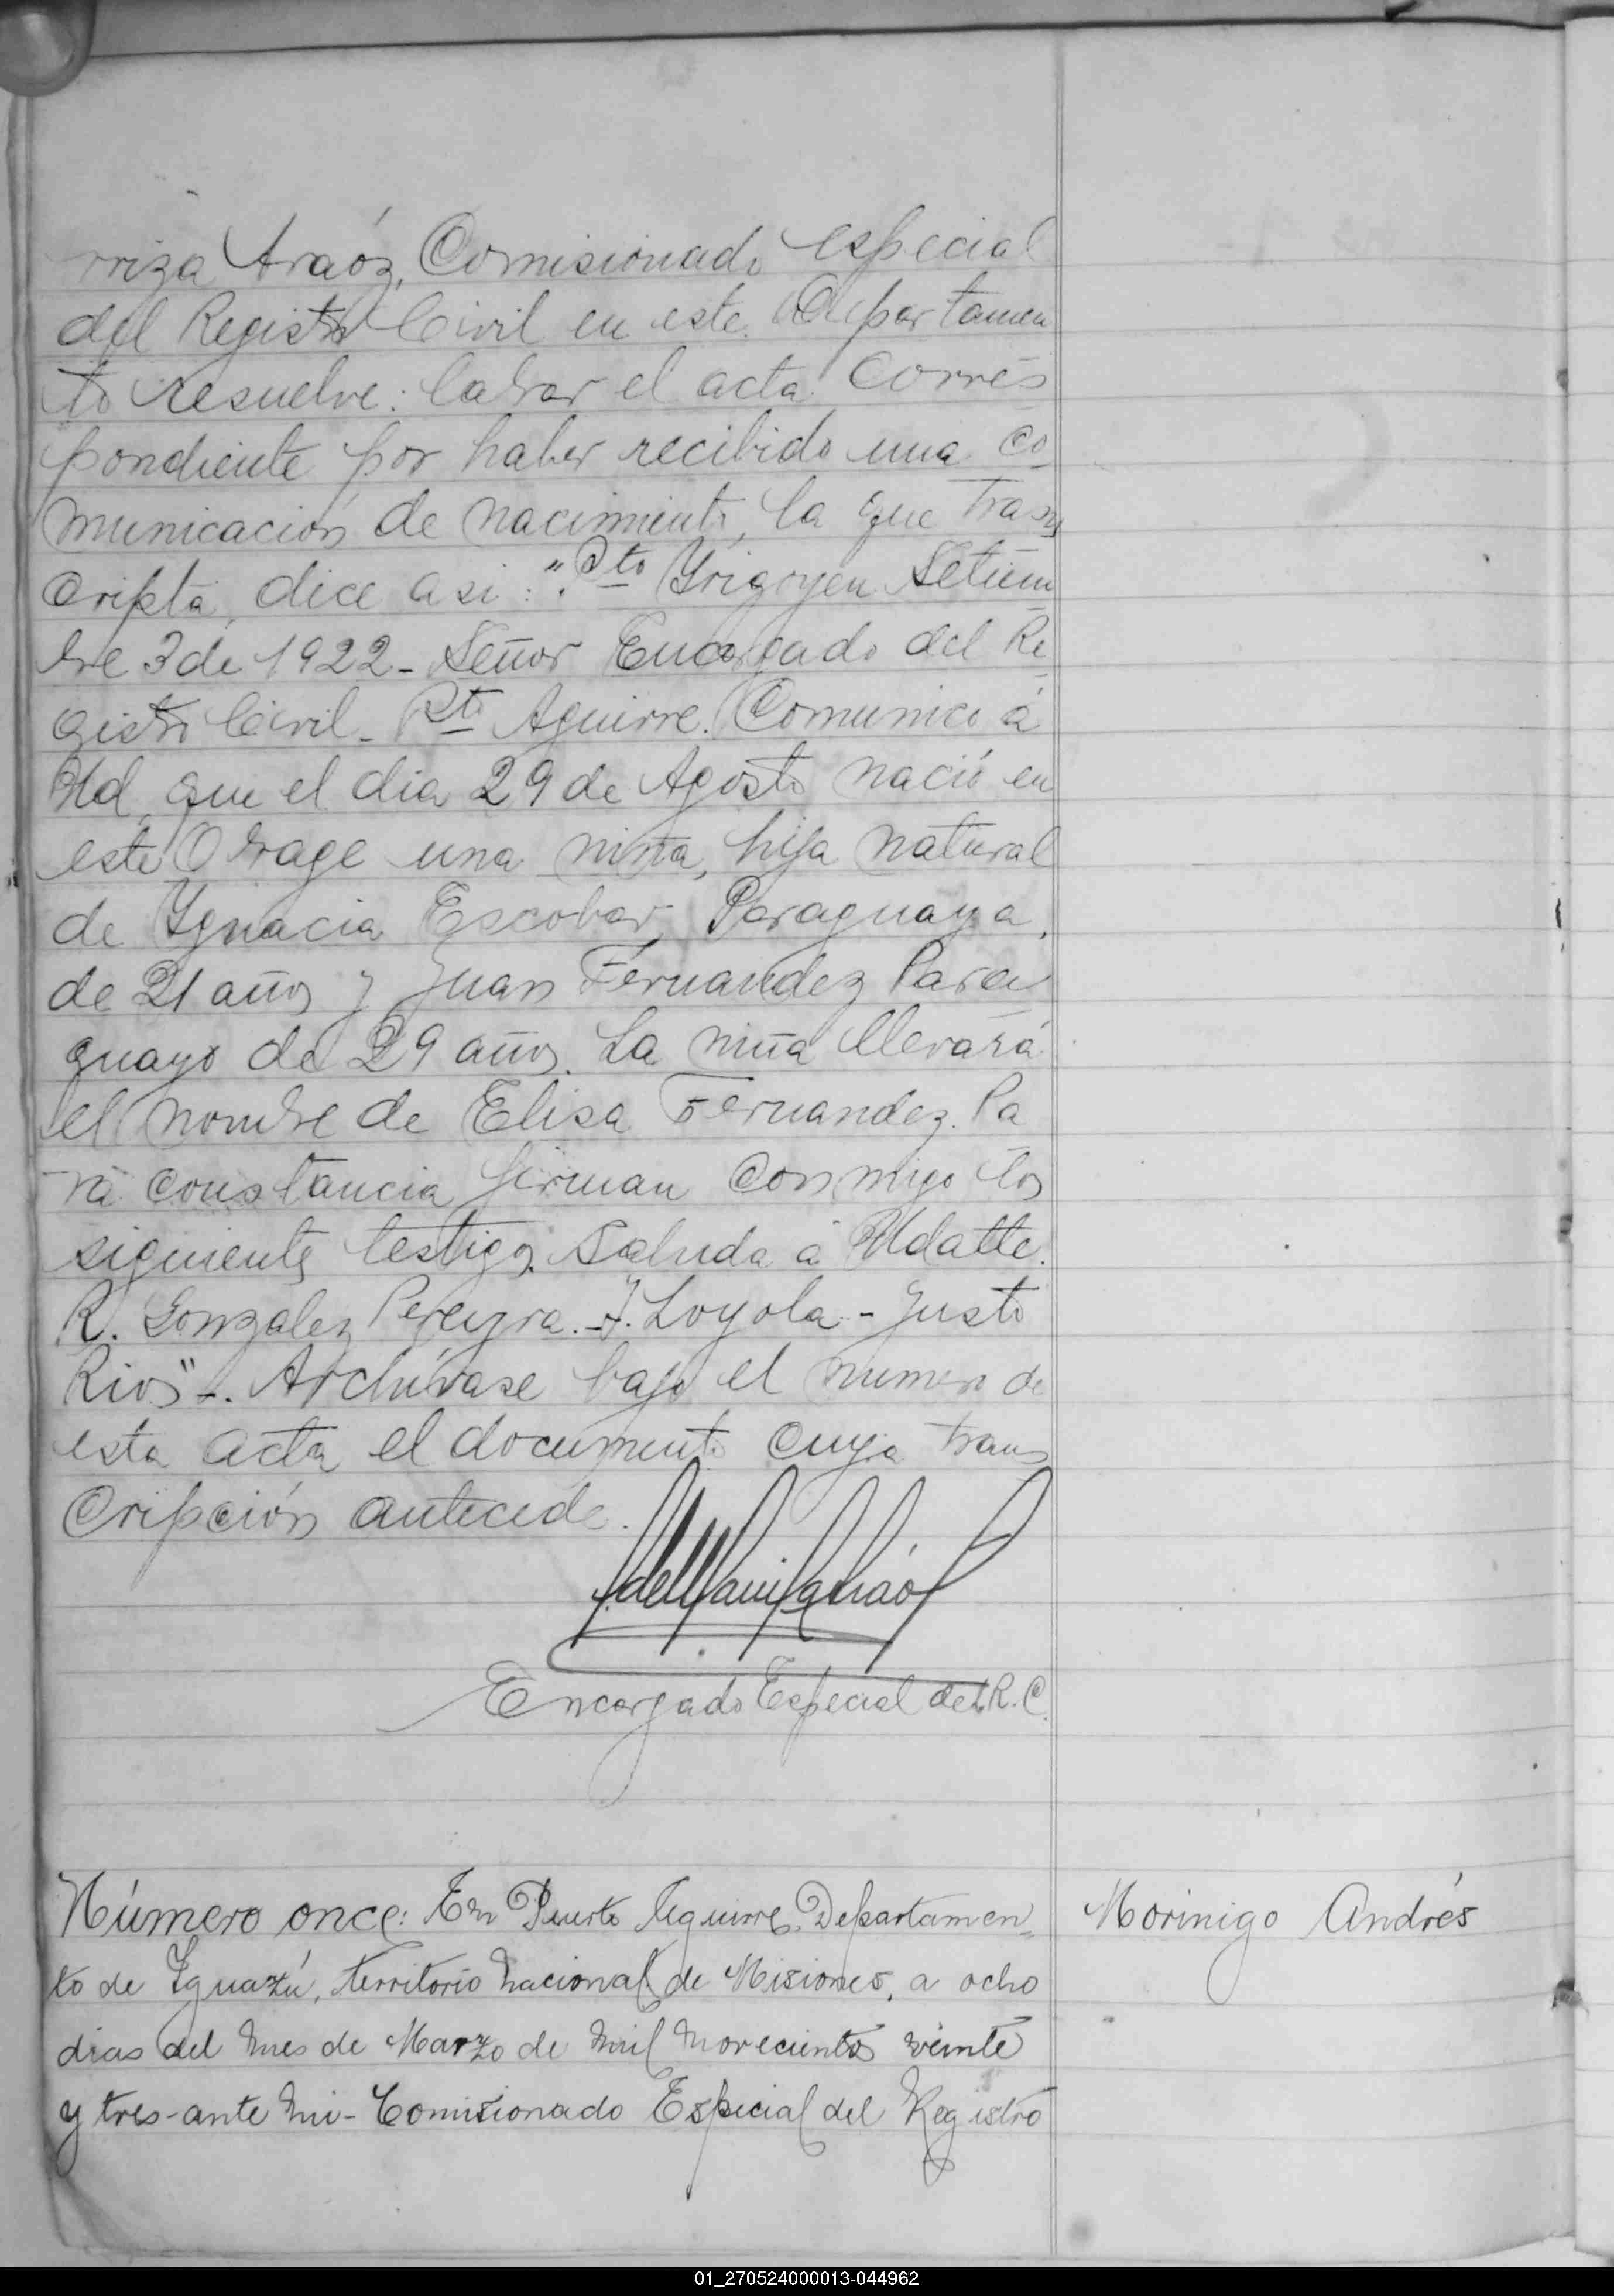 rriza Aráoz, Comisionado especial
del Registro Civil en este Departamen
to resuelve: labrar el acta corres
pondiente por haber recibido una co
municación de nacimiento, la que trans
cripta, dice asi: "Pto Yrigoyen Setiem
bre 3 de 1922 - Señor Encargado del Re
gistro Civil - Pto Aguirre. Comunico á
Ud, que el dia 29 de Agosto nació en
este Obrage una niña, hija natural
de Ygnacia Escobar, Paraguaya,
de 21 años y Juan Fernandez Para
guayo de 29 años. La niña llevará
el nombre de Elisa Fernandez. Pa
ra constancia firman conmigo los
siguientes testigos. Saluda á Ud atte.
R. Gonzalez Pereyra. - J. Loyola - Justo
Rios" -. Archívase bajo el numero de
esta acta el documento cuya trans
cripción antecede.
Encargado Especial del R. C.
Número once: En Puerto Aguirre, Departamen
Morinigo Andrés
to de Iguazú, territorio Nacional de Misiones, a ocho
dias del mes de Marzo de mil novecientos veinte
y tres - ante mi - Comisionado Especial del Registro
01_270524000013-044962